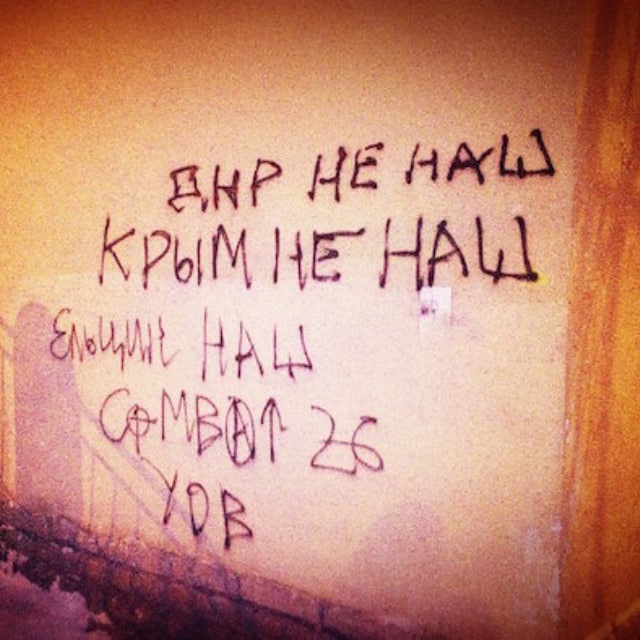 ДНР НЕ НАШ
КРЫМ НЕ НАШ
ЕЛЬЦИН НАШ
COMBAT 26
УОВ